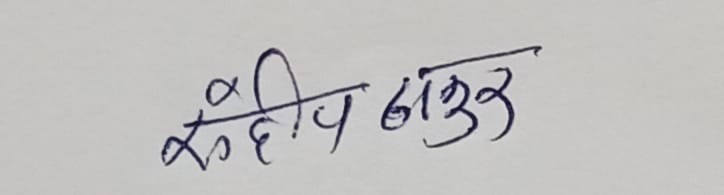 संदीप ठाकुर